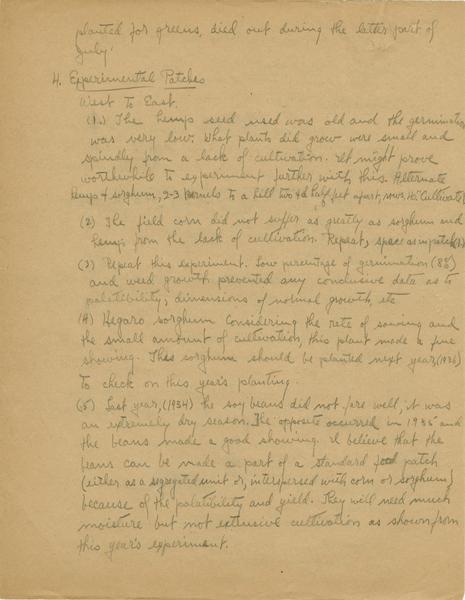 planted for greens, died out during the latter part of
July.
4. Experimental Patches
West to East.
(1.) The hemp seed used was old and the germination
was very low. What plants did grow were small and
spindly from a lack of cultivation. It might prove
worthwhile to experiment further with this. Alternate
hemp & sorghum, 2-3 kernels to a hill two & a half feet apart, rows
(2) The field corn did not suffer as greatly as sorghum and
hemp from the lack of cultivation. Repeat, space as in patch (1.)
(3) Repeat this experiment. Low percentage of germination (8%)
and weed growth prevented any conclusive data as to
palatibility, dimensions of normal growth, etc
(4) Hegaro sorghum considering the rate of sowing and
the small amount of cultivation, this plant made a fine
showing. This sorghum should be planted next year, (1936)
to check on this year's planting.
(5) Last year, (1934) the soy beans did not fare well, it was
an extremely dry season. The opposite occurred in 1935 and
the beans made a good showing. I believe that the
beans can be made a part of a standard food patch
(either as a segregated unit or, interspersed with corn or sorghum)
because of the palatibility and yield. They will need much
moisture but not extensive cultivation as shown from
this year's experiment.